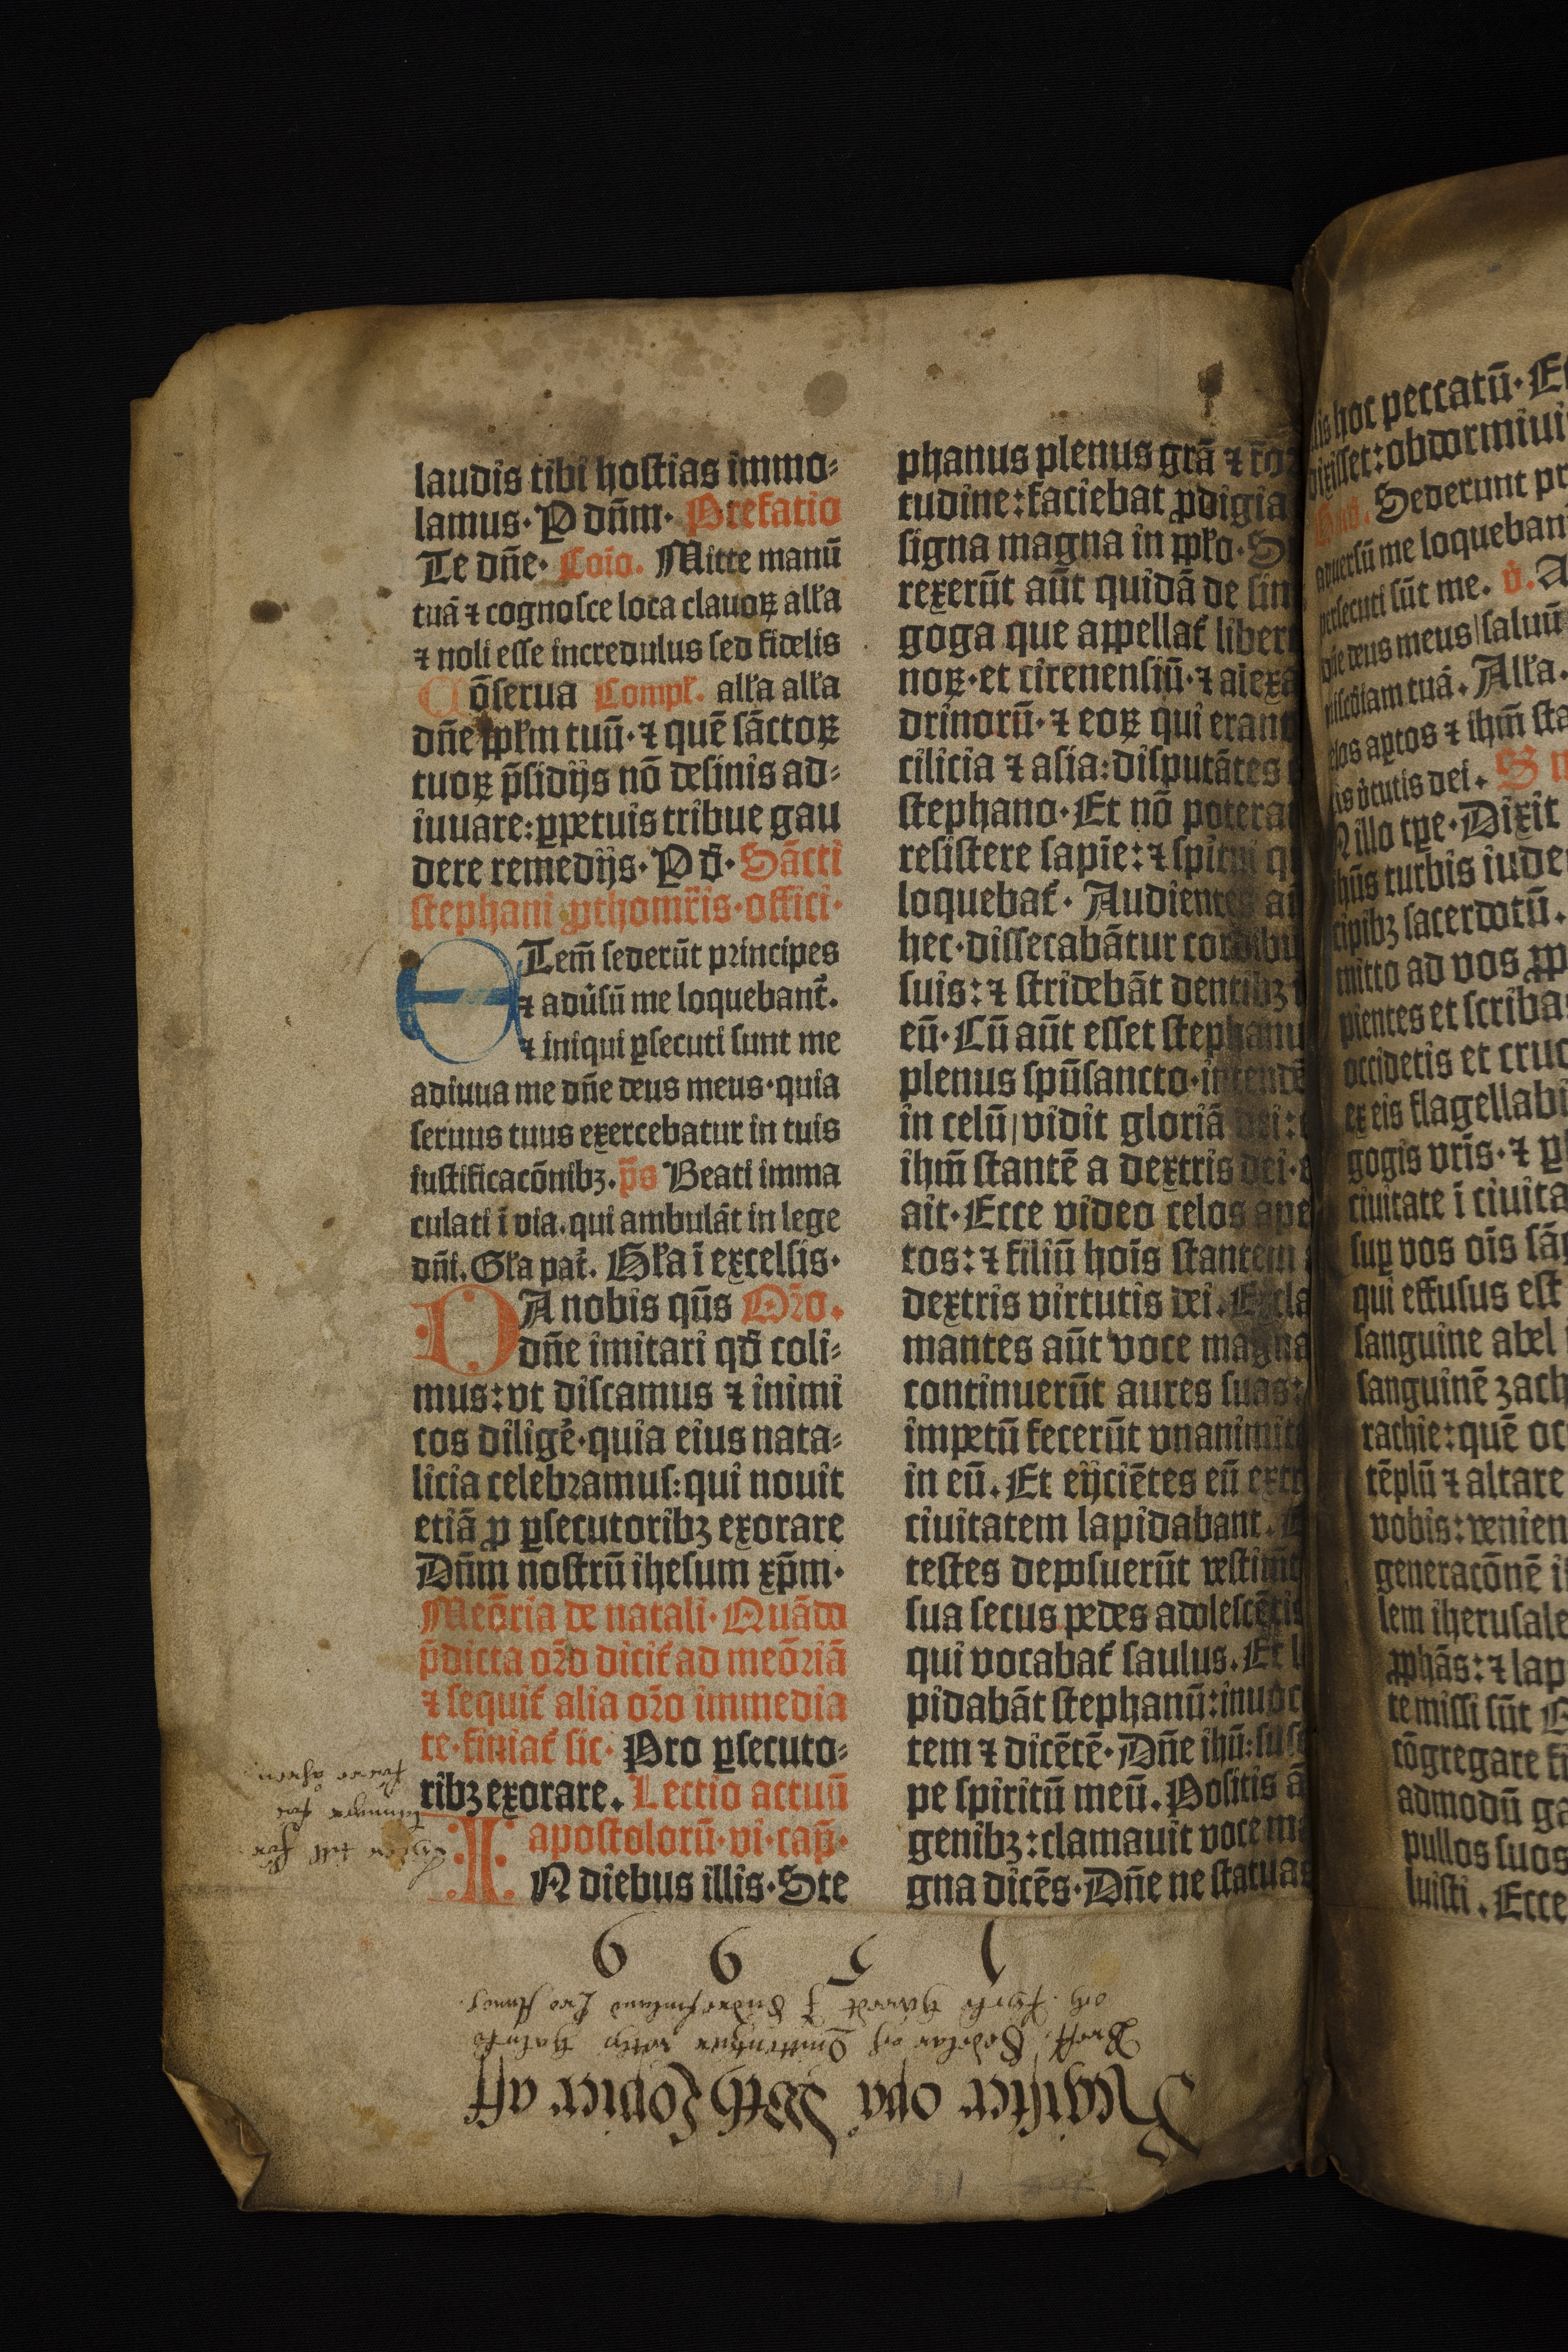 laudis tibi hostias immo⸗
lamus· P dn̄m· Prefatio
Te dn̄e· Coīo. Mitte manū
tuā ⁊ cognosce loca clauoꝝ alła
⁊ noli esse incredulus sed fidelis
Cōserua Compł. alła alła
dn̄e ppłm tuū· ⁊ quē sāctoꝝ
tuoꝝ p̄sidijs nō desinis ad⸗
iuuare: ꝑpetuis tribue gau
dere remedijs· P d̄· Sācti
stephani ꝓthomr̄is· offici·
ETem̄ sederūt principes
⁊ adūsū me loquebant̄.
⁊ iniqui ꝑsecuti sunt me
adiuua me dn̄e deus meus· quia
seruus tuus exercebatur in tuis
iustificacōnibꝫ. p̄s Beati imma
culati ī via. qui ambulāt in lege
dn̄i. Gła pat̄. Gła ī excelsis·
DA nobis qūs Oꝛ̄o.
dn̄e imitari qd̄ coli⸗
mus: vt discamus ⁊ inimi
cos diligē· quia eius nata⸗
licia celebꝛamus: qui nouit
etiā ꝓ ꝑsecutoribꝫ exorare
Dn̄m nostrū ihesum xp̄m·
Meōria de natali· Quādo
p̄dicta oꝛ̄o dicit̄ ad meōꝛiā
⁊ sequit̄ alia oꝛ̄o immedia
te· finiat̄ sic· Pro ꝑsecuto⸗
ribꝫ exorare. Lectio actuū
apostolorū· vi· cap̄·
IN diebus illis· Ste
phanus plenus grā ⁊
tudine: faciebat ꝓdigia
signa magna in ppło·
rexerūt aūt quidā de sin
goga que appellat̄ liberi
noꝝ· et cirenensiū· ⁊ alexa
drinorū· ⁊ eoꝝ qui erant
cilicia ⁊ asia: disputātes
stephano· Et nō potera
resistere sapie: ⁊ spirui q
loquebat̄· Audientes
hec· dissecabātur cordibu
suis: ⁊ stridebāt dentibꝫ
eū· Cū aūt esset stephanu
plenus spūsancto· intendē
in celū/ vidit gloriā dei:
ihm̄ stantē a dextris dei·
ait· Ecce video celos ape
tos: ⁊ filiū hoīs stantem
dextris virtutis dei. Excla
mantes aūt voce magna
continuerūt aures suas:
impetū fecerūt vnanimit
in eū. Et eijciētes eū extr
ciuitatem lapidabant.
testes deposuerūt vestimt
sua secus pedes adolescētis
qui vocabat̄ saulus. Et l
pidabāt stephanū: inuoc
tem ⁊ dicētē· Dn̄e ihū: sus
pe spiritū meū. Positis ā
genibꝫ: clamauit voce ma
gna dicēs· Dn̄e ne statuas
Register opå
1 5 9 9
is hoc peccatū· Et
dixisset: obdormiui
Sederunt pr
aduersū me loquebant
persecuti sūt me. v̄. A
dn̄e deus meus/ saluū
misc̄diam tuā. Alła.
los aꝑtos ⁊ ihm̄ sta
is v̄tutis dei. S
N illo tꝑe· Dixit
ihūs turbis iude
cipibꝫ sacerdotū.
mitto ad vos ꝓp
pientes et scriba
occidetis et cruc
ex eis flagellabi
gogis vr̄is· ⁊ ꝑ
ciuitate ī ciuita
suꝑ vos oīs sā
qui effusus est
sanguine abel
sanguinē zach
rachie: quē oc
tēplū ⁊ altare
vobis: venien
generacōnē i
lem iherusale
ꝓphās: ⁊ lap
te missi sūt
cōgregare fi
admodū ga
pullos suos
luisti. Ecce